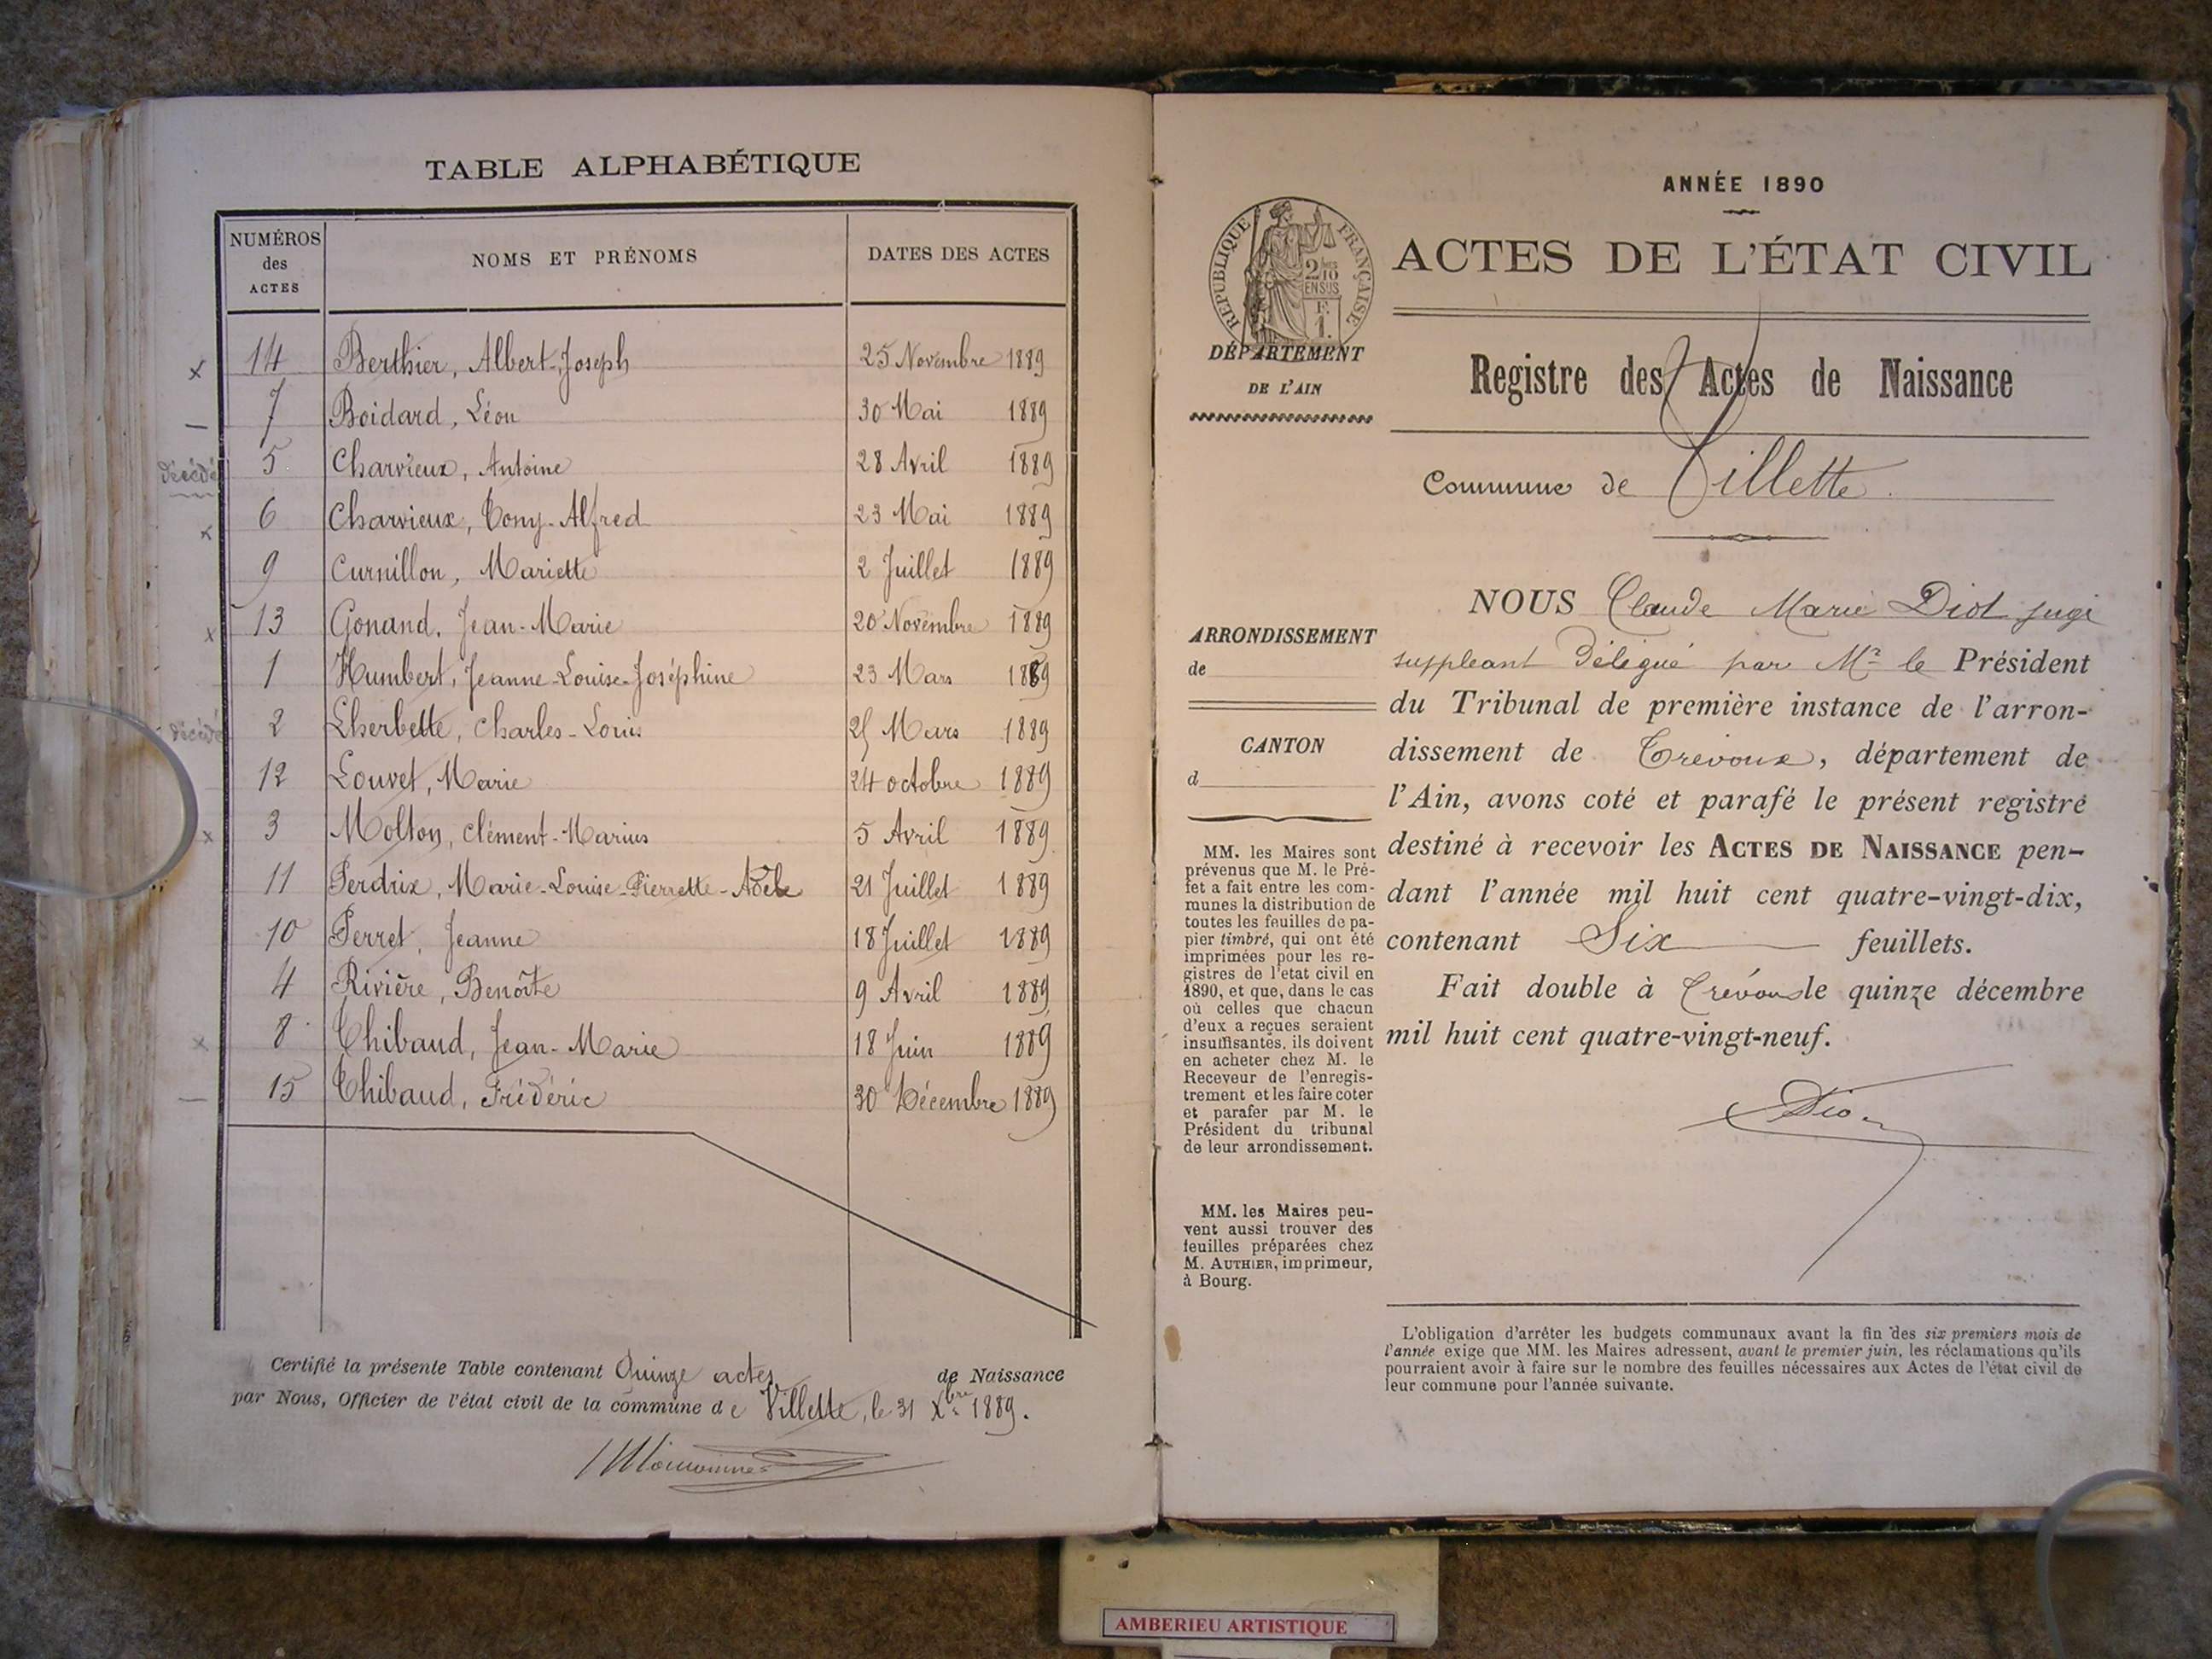 TABLE ALPHABÉTIQUE
NUMÉROS des ACTES NOMS ET PRÉNOMS DATES DES ACTES
x 14 Berthier, Albert-Joseph 25 Novembre 1889
— 7 Boidard, Léon 30 Mai 1889
décédé 5 Charvieux, Antoine 28 Avril 1889
x 6 Charvieux, Tony-Alfred 23 Mai 1889
9 Curnillon, Mariette 2 Juillet 1889
x 13 Gonand, Jean-Marie 20 Novembre 1889
1 Humbert, Jeanne-Louise-Joséphine 23 Mars 1889
décédé 2 Lherbette, Charles-Louis 25 Mars 1889
12 Louvet, Marie 24 octobre 1889
x 3 Molton, Clément-Marius 5 Avril 1889
11 Perdrix, Marie-Louise-Pierrette-Adèle 21 Juillet 1889
10 Perret, Jeanne 18 Juillet 1889
4 Rivière, Benoîte 9 Avril 1889
x 8 Thibaud, Jean-Marie 18 Juin 1889
— 15 Thibaud, Frédéric 30 Décembre 1889
Certifié la présente Table contenant Quinze actes de Naissance
par Nous, Officier de l'état civil de la commune de Villette, le 31 Xbre 1889.
ANNÉE 1890
RÉPUBLIQUE FRANÇAISE
2/10 EN SUS
F. 1.
ACTES DE L'ÉTAT CIVIL
DÉPARTEMENT
DE L'AIN
Registre des Actes de Naissance
Commune de Villette
ARRONDISSEMENT
de
CANTON
d
MM. les Maires sont
prévenus que M. le Pré-
fet a fait entre les com-
munes la distribution de
toutes les feuilles de pa-
pier timbré, qui ont été
imprimées pour les re-
gistres de l'etat civil en
1890, et que, dans le cas
où celles que chacun
d'eux a reçues seraient
insuffisantes, ils doivent
en acheter chez M. le
Receveur de l'enregis-
trement et les faire coter
et parafer par M. le
Président du tribunal
de leur arrondissement.
MM. les Maires peu-
vent aussi trouver des
feuilles préparées chez
M. AUTHIER, imprimeur,
à Bourg.
NOUS Claude Marie Diot juge
suppleant Délégué par Mr le Président
du Tribunal de première instance de l'arron-
dissement de Trevoux, département de
l'Ain, avons coté et parafé le présent registre
destiné à recevoir les ACTES DE NAISSANCE pen-
dant l'année mil huit cent quatre-vingt-dix,
contenant Six feuillets.
Fait double à Trévoux le quinze décembre
mil huit cent quatre-vingt-neuf.
Diot
L'obligation d'arrêter les budgets communaux avant la fin des six premiers mois de
l'année exige que MM. les Maires adressent, avant le premier juin, les réclamations qu'ils
pourraient avoir à faire sur le nombre des feuilles nécessaires aux Actes de l'état civil de
leur commune pour l'année suivante.
AMBERIEU ARTISTIQUE